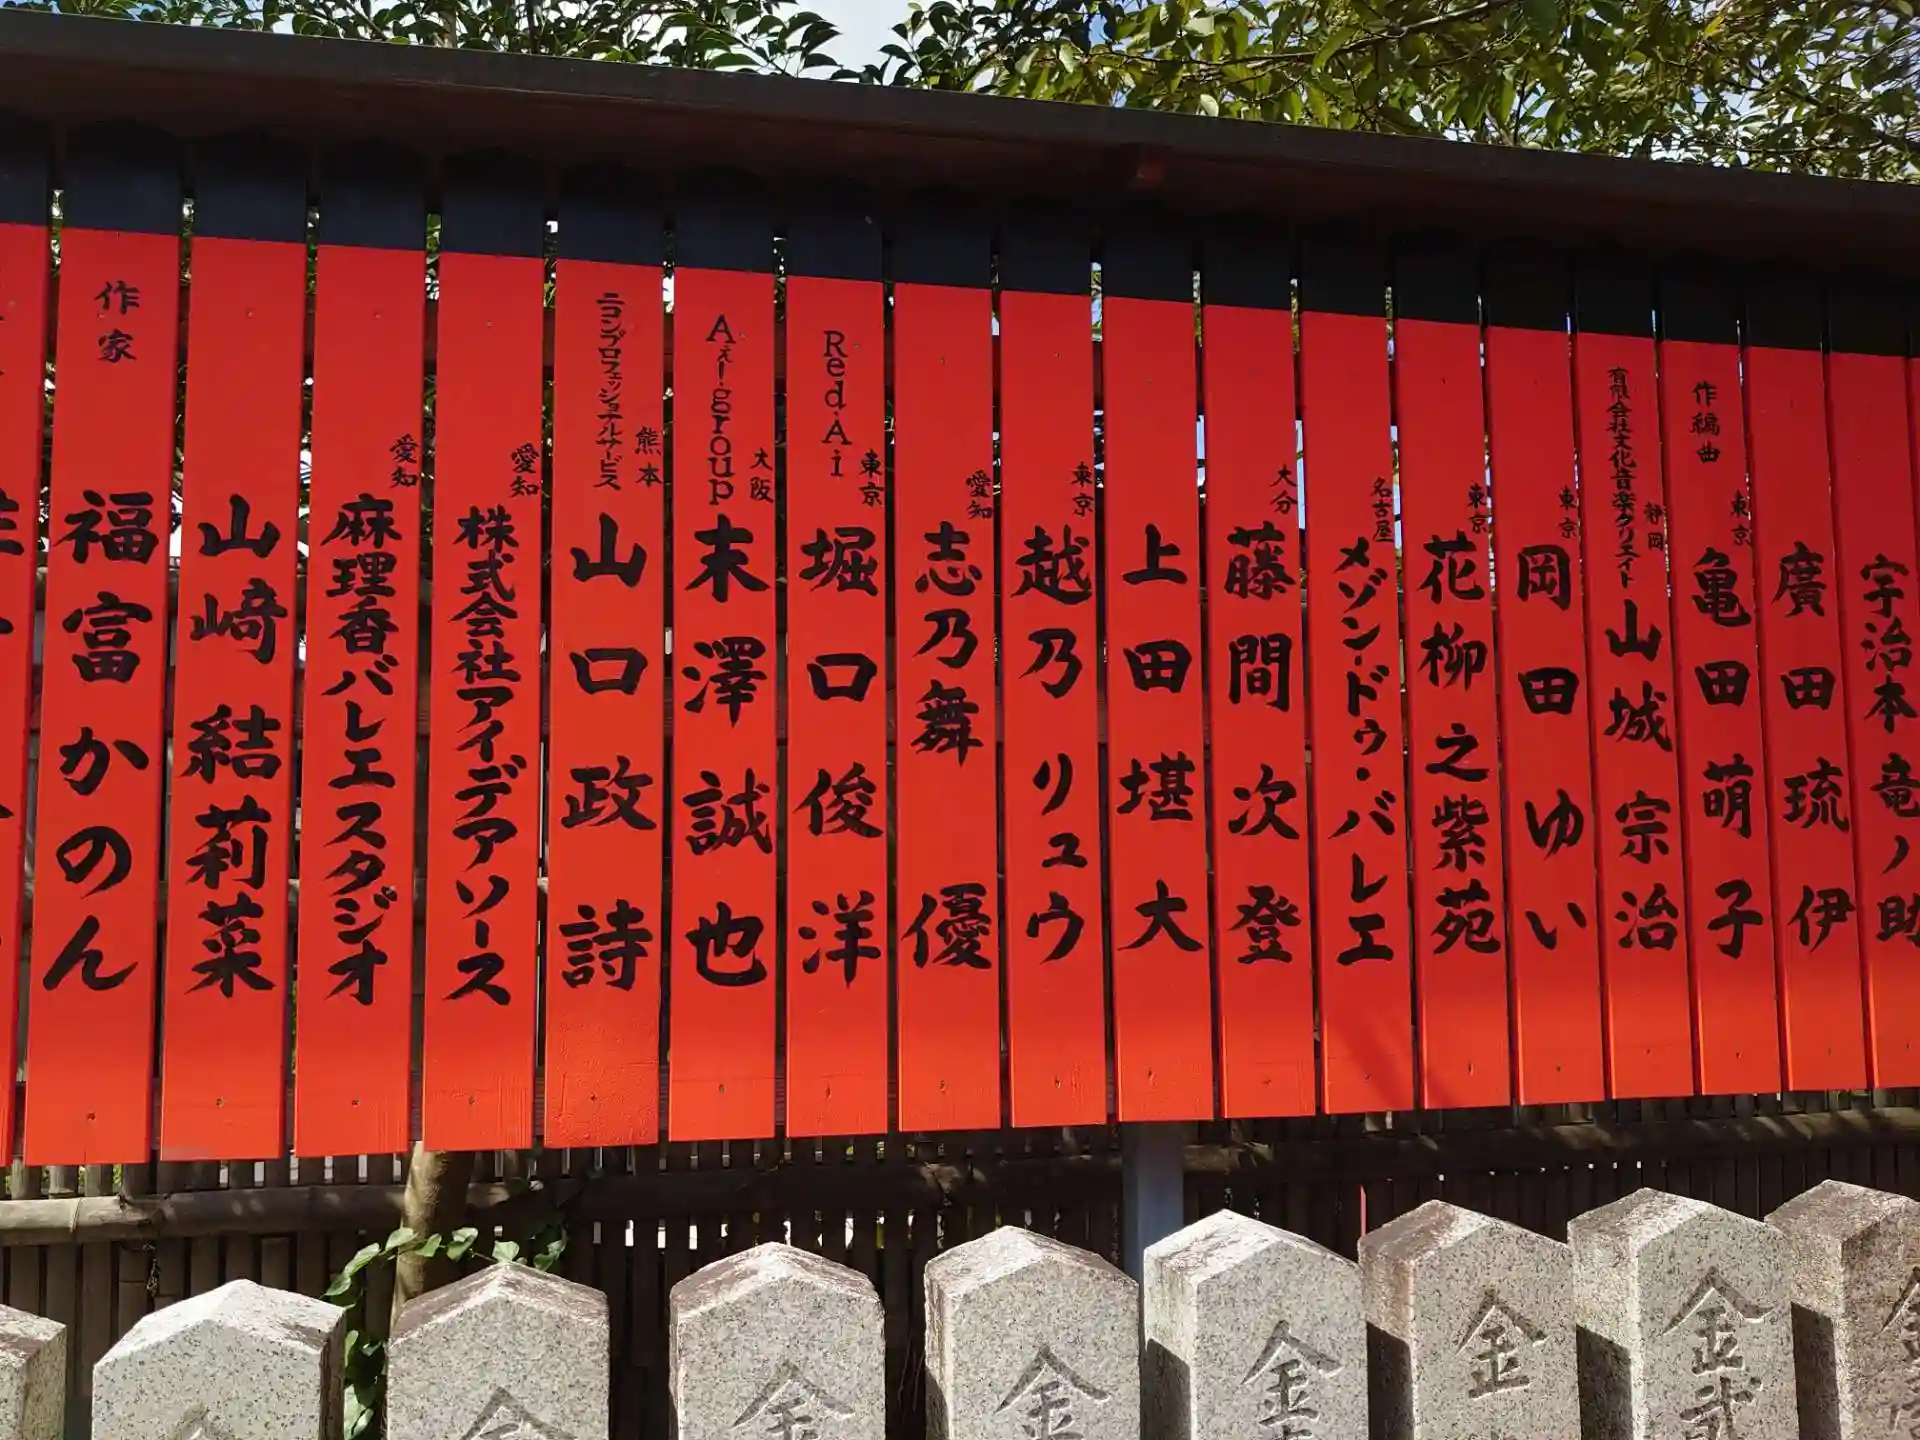 宇治本竜ノ助
廣田琉伊
作編曲
東京
亀田萌子
有限会社文化音楽クリエイト
静岡
山城宗治
東京
岡田ゆい
東京
花柳之紫苑
名古屋
メゾン・ドゥ・バレエ
大分
藤間次登
上田堪大
東京
越乃リュウ
愛知
志乃舞優
Red.Ai
東京
堀口俊洋
Aぇ!group
大阪
末澤誠也
ニコンプロフェッショナルサービス
熊本
山口政詩
愛知
株式会社アイデアソース
愛知
麻理香バレエスタジオ
山﨑結莉菜
作家
福富かのん
金
金
金
金
金
金
金